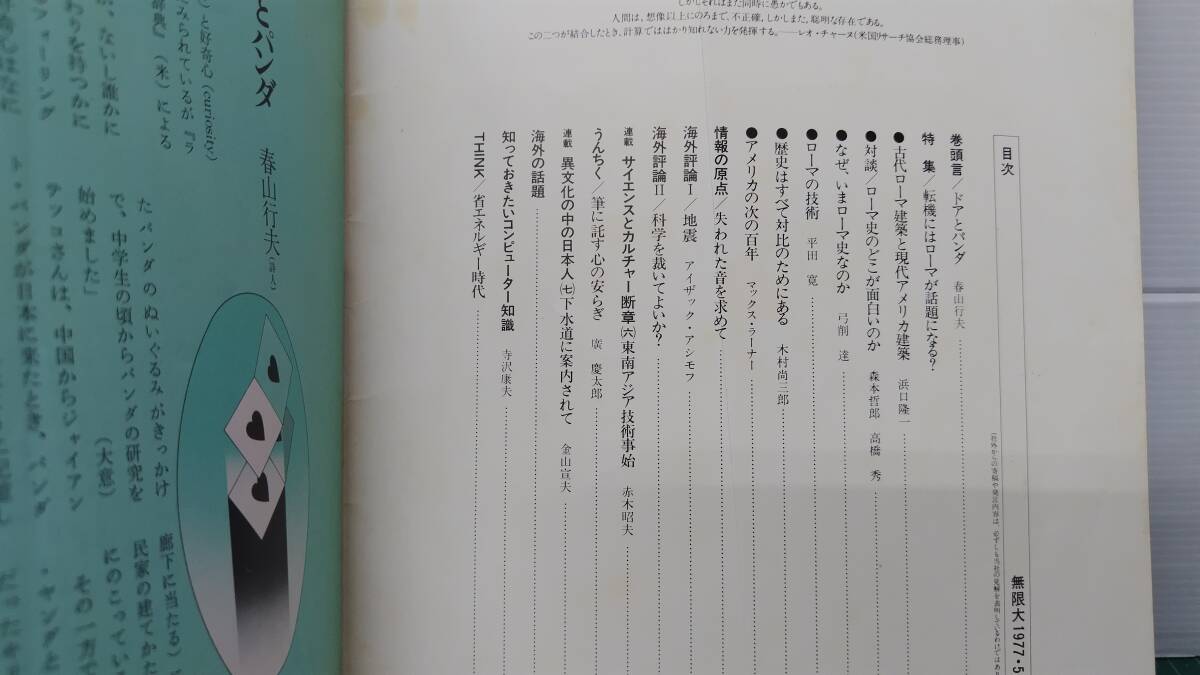 しかしそれはまた同時に愚かでもある。
人間は、想像以上にのろまで、不正確、しかしまた、聡明な存在である。
この二つが結合したとき、計算でははかり知れない力を発揮する。——レオ・チャーヌ(米国リサーチ協会総務理事)
無限大 1977・5
目次
巻頭言/ドアとパンダ 春山行夫
特 集/転機にはローマが話題になる?
●古代ローマ建築と現代アメリカ建築 浜口隆一
●対談/ローマ史のどこが面白いのか 森本哲郎 高橋 秀
●なぜ、いまローマ史なのか 弓削 達
●ローマの技術 平田 寛
●歴史はすべて対比のためにある 木村尚三郎
●アメリカの次の百年 マックス・ラーナー
情報の原点/失われた音を求めて
海外評論Ⅰ/地震 アイザック・アシモフ
海外評論Ⅱ/科学を裁いてよいか?
連載 サイエンスとカルチャー断章㈥東南アジア技術事始 赤木昭夫
うんちく/筆に託す心の安らぎ 廣 慶太郎
連載 異文化の中の日本人㈦下水道に案内されて 金山宣夫
海外の話題
知っておきたいコンピューター知識 寺沢康夫
THINK/省エネルギー時代
とパンダ
春山行夫(詩人)
と好奇心(curiosity)
みられているが『ラ
(米)による
ない し誰かに
わりを持つかに
フォーリング
たパンダのぬいぐるみがきっかけ
で、中学生の頃からパンダの研究を
始めました」
(大意)
テッコさんは、中国からジャイアン
ト・パンダが日本に来たとき、パンダ
廊下に当たる)
民家の建てかた
にのこってい
その一方で